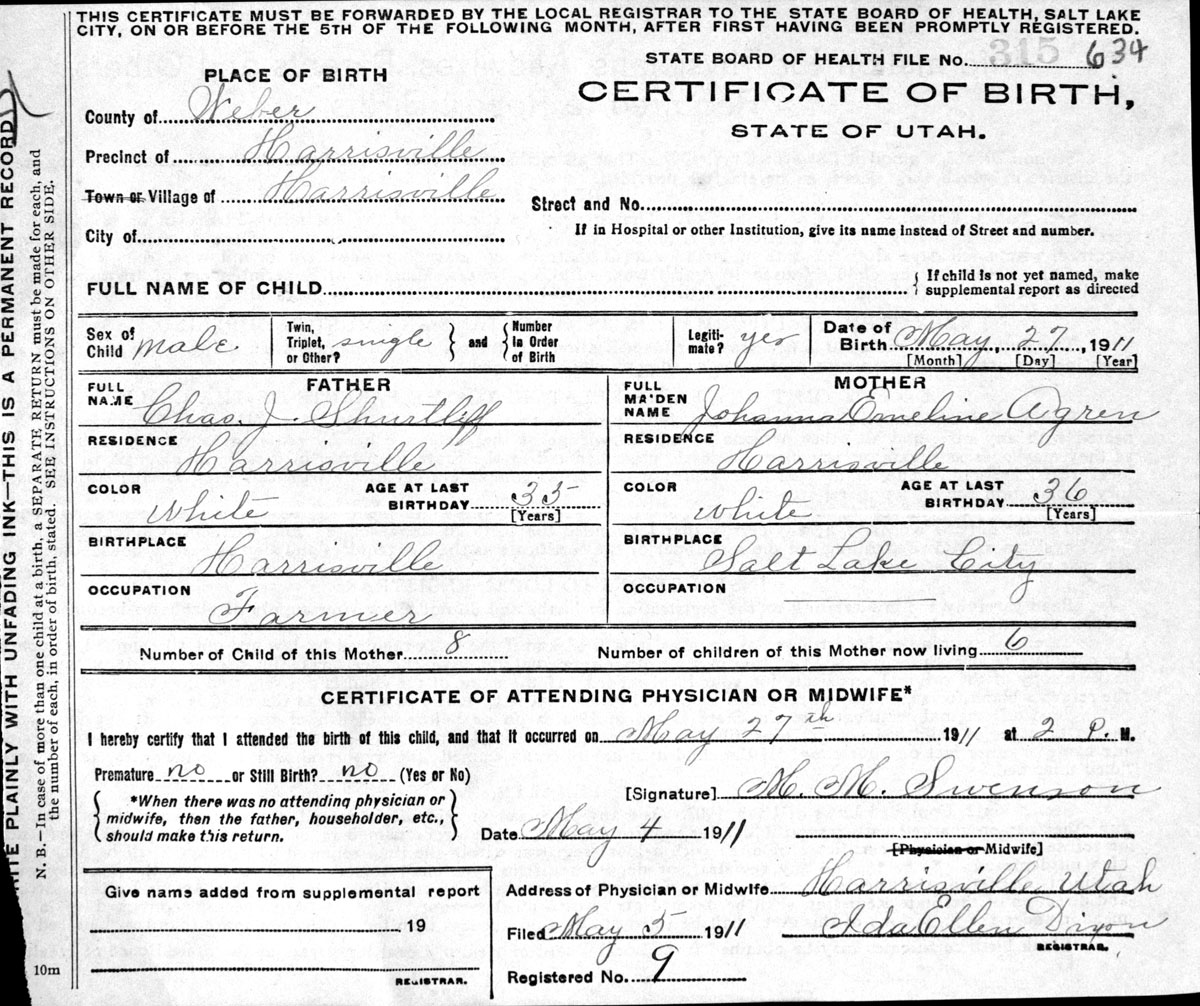 THIS CERTIFICATE MUST BE FORWARDED BY THE LOCAL REGISTRAR TO THE STATE BOARD OF HEALTH, SALT LAKE
CITY, ON OR BEFORE THE 5TH OF THE FOLLOWING MONTH, AFTER FIRST HAVING BEEN PROMPTLY REGISTERED.
STATE BOARD OF HEALTH FILE No. 315 634
PLACE OF BIRTH
CERTIFICATE OF BIRTH,
STATE OF UTAH.
County of Weber
Precinct of Harrisville
Town or Village of Harrisville
Street and No.
City of
If in Hospital or other Institution, give its name instead of Street and number.
FULL NAME OF CHILD { If child is not yet named, make supplemental report as directed
Sex of Child male Twin, Triplet, or Other? single } and { Number in Order of Birth Legiti-mate? yes Date of Birth May 27, 1911
[Month] [Day] [Year]
FATHER
FULL NAME Chas. J. Shurtliff
RESIDENCE Harrisville
COLOR White AGE AT LAST BIRTHDAY 35 [Years]
BIRTHPLACE Harrisville
OCCUPATION Farmer
MOTHER
FULL MAIDEN NAME Johanna Emeline Agren
RESIDENCE Harrisville
COLOR White AGE AT LAST BIRTHDAY 36 [Years]
BIRTHPLACE Salt Lake City
OCCUPATION
Number of Child of this Mother 8 Number of children of this Mother now living 6
CERTIFICATE OF ATTENDING PHYSICIAN OR MIDWIFE*
I hereby certify that I attended the birth of this child, and that it occurred on May 27th 1911 at 2 P. M.
Premature no or Still Birth? no (Yes or No)
{ *When there was no attending physician or
midwife, then the father, householder, etc.,
should make this return. }
[Signature] M. M. Swenson
Date May 4 1911
[Physician or Midwife]
Give name added from supplemental report
19
REGISTRAR.
Address of Physician or Midwife Harrisville Utah
Filed May 5 1911 Ida Ellen Dixon
REGISTRAR.
Registered No. 9
10m
PLAINLY WITH UNFADING INK—THIS IS A PERMANENT RECORD
N. B.—In case of more than one child at a birth, a SEPARATE RETURN must be made for each, and
the number of each, in order of birth, stated. SEE INSTRUCTIONS ON OTHER SIDE.